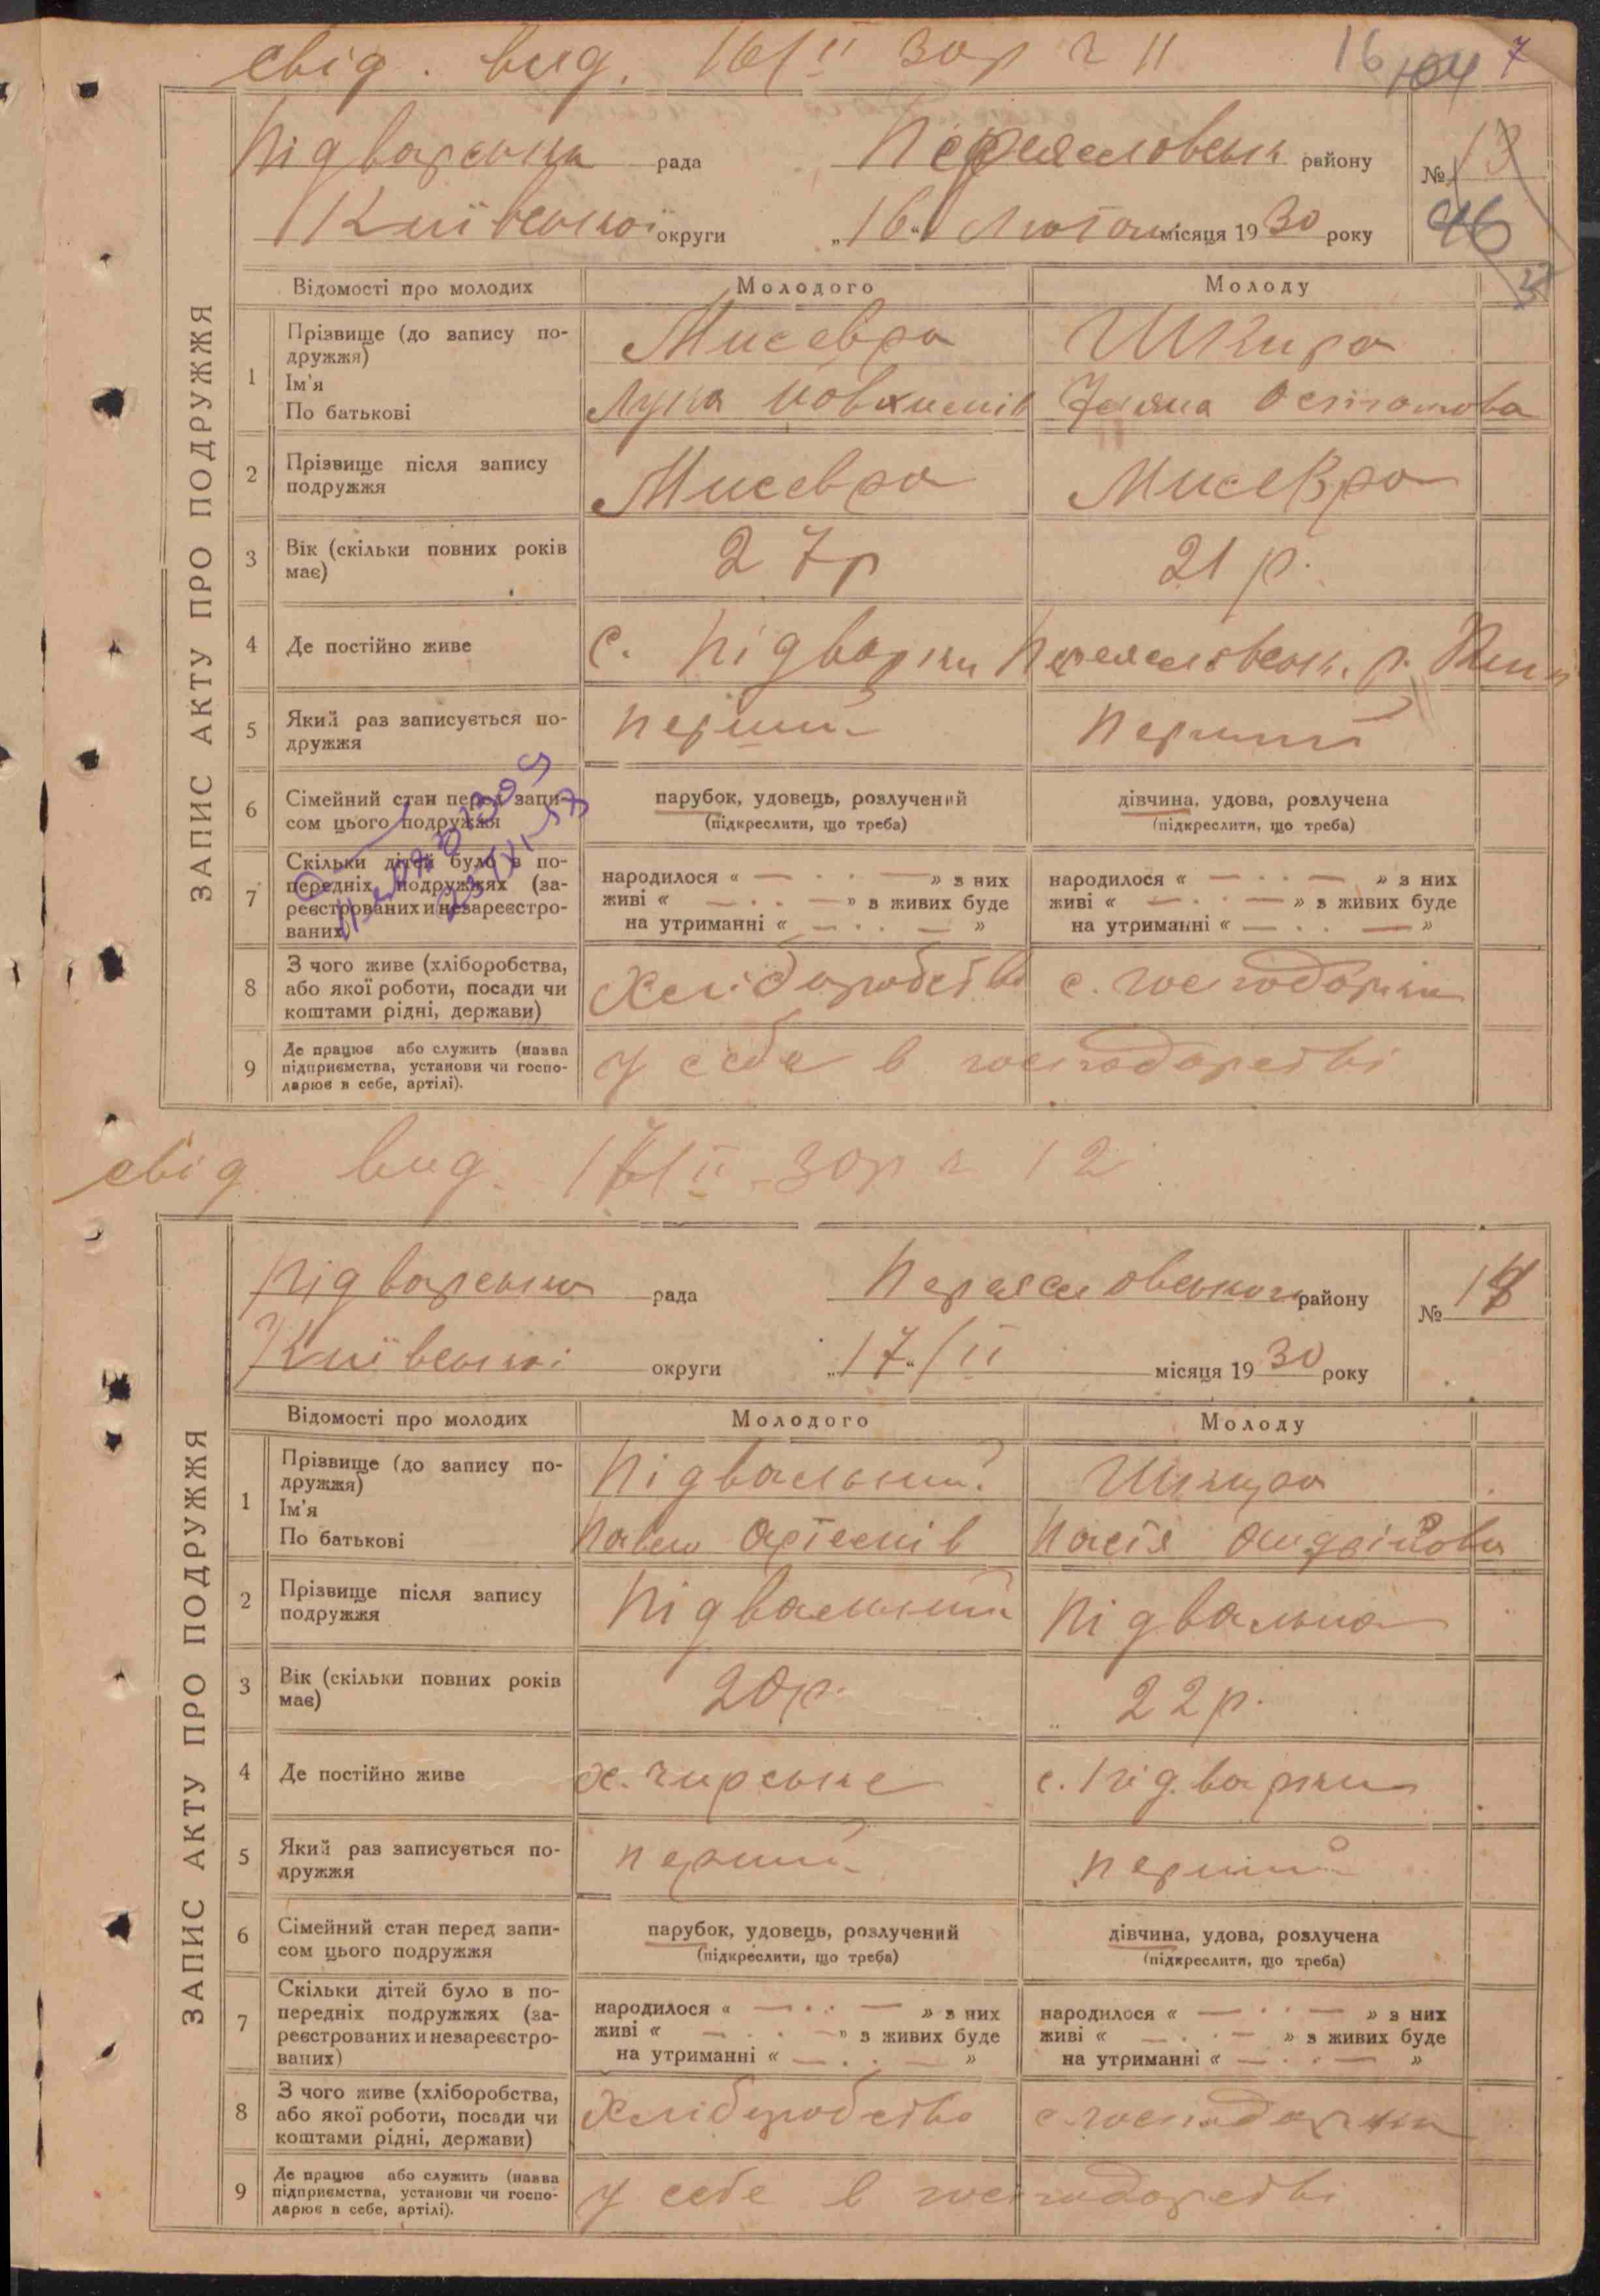 свід. вид. 16/II 30р г 11
16 104 7
ЗАПИС АКТУ ПРО ПОДРУЖЖЯ
Підварська рада Переяславськ району № 13
Київської округи „16“ Лютого місяця 1930 року 46
Відомості про молодих Молодого Молоду
1 Прізвище (до запису по-
дружжя) Мисевра Шкира
Ім'я
По батькові Лука Остапова
2 Прізвище після запису
подружжя Мисевра Мисевра
3 Вік (скільки повних років
має) 27р 21р.
4 Де постійно живе с. Підварки Переяславськ. р.
5 Який раз записується по-
дружжя перший перший
6 Сімейний стан перед запи-
сом цього подружжя
парубок, удовець, розлучений
(підкреслити, що треба)
дівчина, удова, розлучена
(підкреслити, що треба)
7 Скільки дітей було в по-
передніх подружжях (за-
реєстрованих и незареєстро-
ваних)
народилося « — . . — » з них
живі « — . . — » з живих буде
на утриманні « — . . — »
народилося « — . . — » з них
живі « — . . — » з живих буде
на утриманні « — . . — »
8 З чого живе (хліборобства,
або якої роботи, посади чи
коштами рідні, держави)
Хліборобство с. господарки
9 Де працює або служить (назва
підприємства, установи чи госпо-
дарює в себе, артілі).
у себе в господарстві
свід вид. 17/II 30р г 12
ЗАПИС АКТУ ПРО ПОДРУЖЖЯ
Підварська рада Переяславського району №
Київської округи „17“/II місяця 1930 року
Відомості про молодих Молодого Молоду
1 Прізвище (до запису по-
дружжя) Підвальний Шкира
Ім'я
По батькові Павло Артемів Настя Андрійова
2 Прізвище після запису
подружжя Підвальний Підвальна
3 Вік (скільки повних років
має) 20р. 22р.
4 Де постійно живе х. Чирське с. Підварки
5 Який раз записується по-
дружжя перший перший
6 Сімейний стан перед запи-
сом цього подружжя
парубок, удовець, розлучений
(підкреслити, що треба)
дівчина, удова, розлучена
(підкреслити, що треба)
7 Скільки дітей було в по-
передніх подружжях (за-
реєстрованих и незареєстро-
ваних)
народилося « — . . — » з них
живі « — . . — » з живих буде
на утриманні « — . . — »
народилося « — . . — » з них
живі « — . . — » з живих буде
на утриманні « — . . — »
8 З чого живе (хліборобства,
або якої роботи, посади чи
коштами рідні, держави)
Хліборобство с. господарки
9 Де працює або служить (назва
підприємства, установи чи госпо-
дарює в себе, артілі).
у себе в господарстві